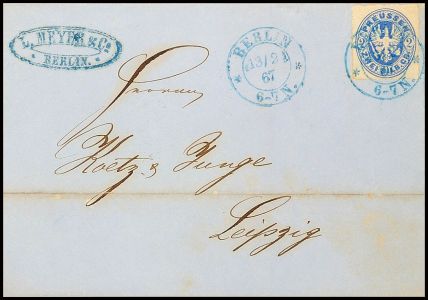 L. MEYER & Co.
BERLIN.
BERLIN
13/2
67
6-7 N.
PREUSSEN
ZWEI SILB. GR.
6-7 N.
Herren
Koetz & Junge
Leipzig